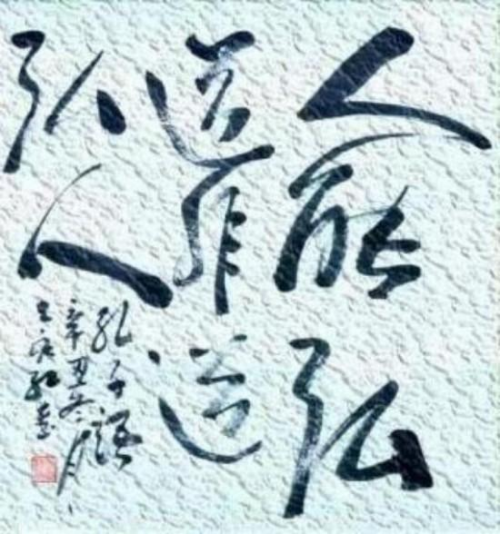 人能弘
道非道
弘人
孔子語
辛丑冬月